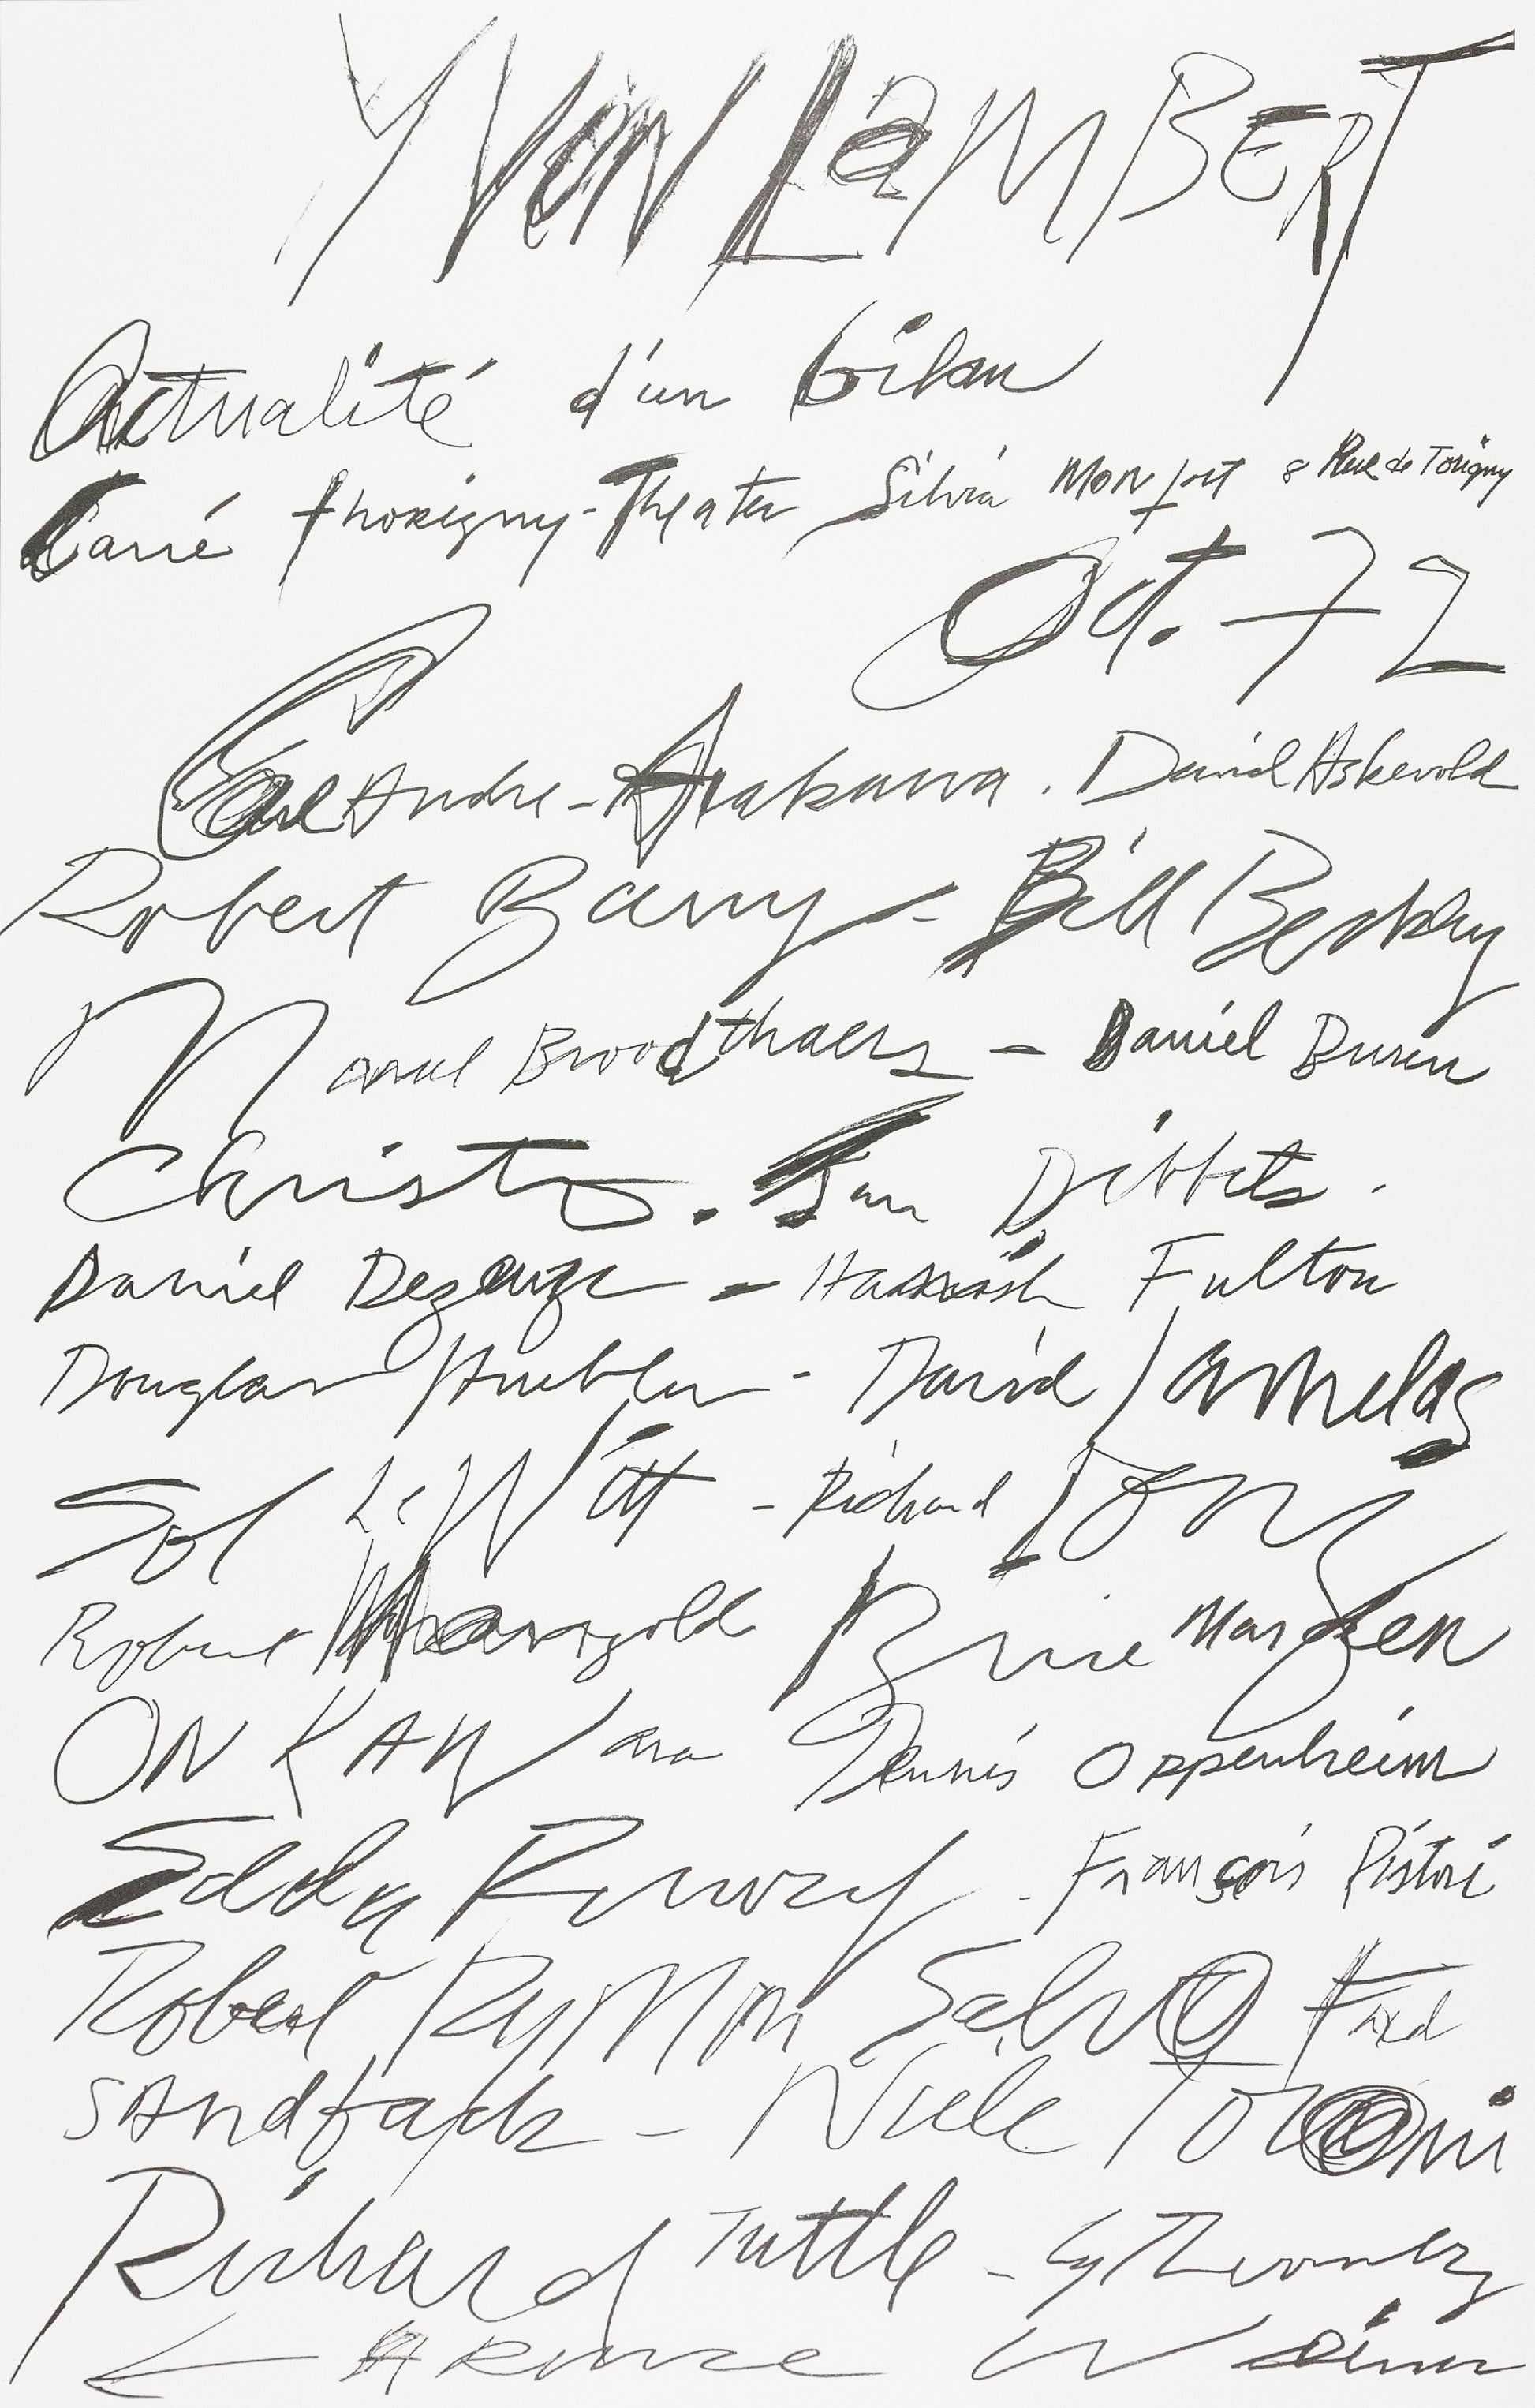 YVON LAMBERT
Actualité d'un bilan
Carré Thorigny-Theater Silvia Monfort 8 Rue de Torigny
Oct. 72
Carl Andre - Arakawa. David Askevold
Robert Barry - Bill Beckley
Marcel Broodthaers - Daniel Buren
Christo. Jan Dibbets.
Daniel Dezeuze - Hamish Fulton
Douglas Huebler - David Lamelas
Sol LeWitt - Richard Long
Robert Mangold Brice Marden
ON KAWara Dennis Oppenheim
Eddy - François Ristori
Robert Ryman Salvo Fred
SAndback - Niele Toroni
Richard Tuttle - Cy Twombly
LARence Weiner